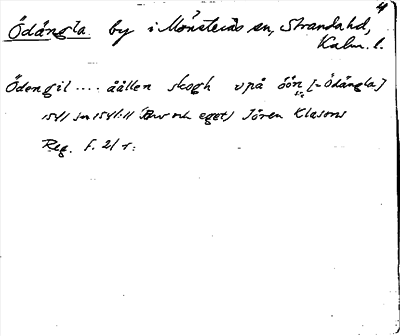 4
Ödängla. by i Mönsterås sn, Strandahd,
Kalm. l.
Ödengil .... åållen skogh upå öön [= Ödängla]
1541 sn 1541:11 (Arv och eget) Jören Klasons
Reg. f. 21 r: